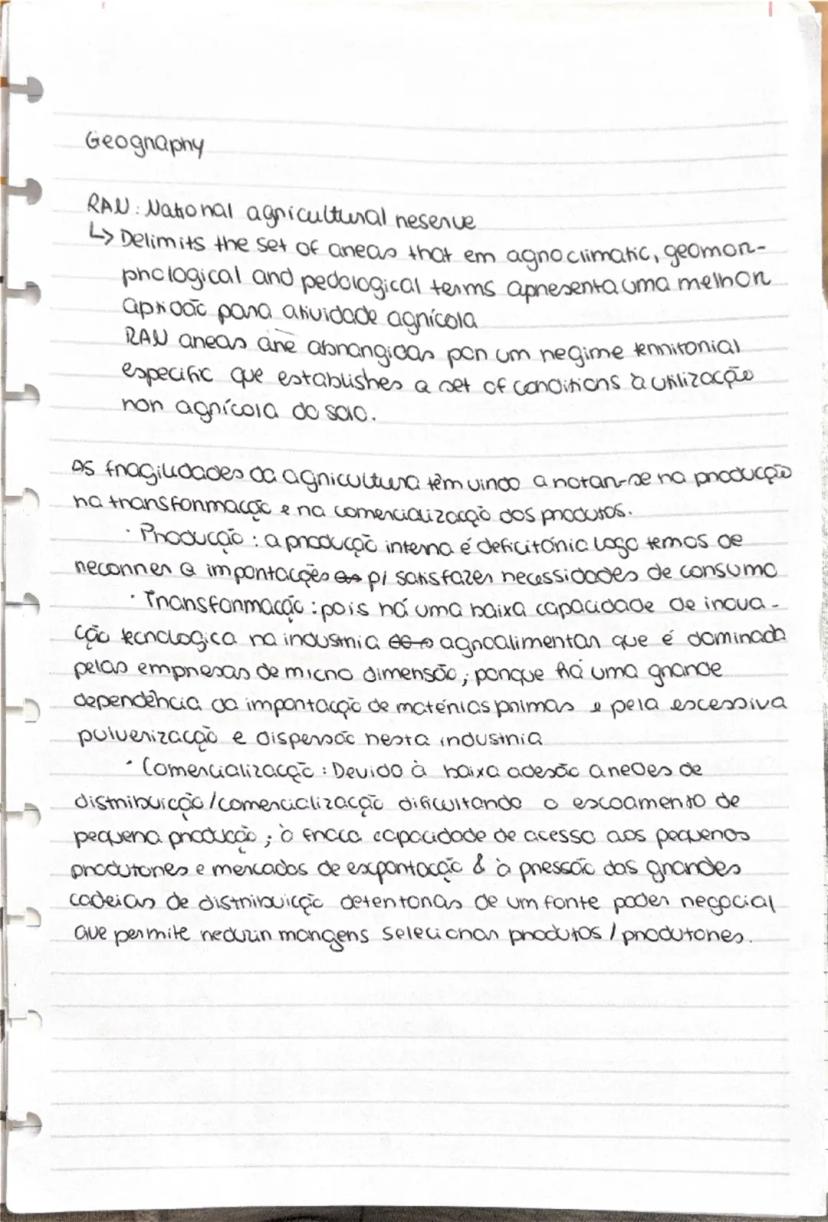 Geography
RAN: National agricultural reserve
↳ Delimits the set of areas that em agroclimatic, geomor-
phological and pedological terms apresenta uma melhor
aptidão para atividade agrícola
RAN areas are abrangidas por um regime territorial
especific que establishes a set of conditions à utilização
non agrícola do solo.
As fragilidades da agricultura têm vindo a notar-se na producção
na transformacção e na comercializacção dos produtos.
· Producção: a producção interna é deficitária logo temos de
recorrer a importacções p/ satisfazer necessidades de consumo
· Transformacção: pois há uma baixa capacidade de inova-
ção tecnologica na industria agroalimentar que é dominada
pelas empresas de micro dimensão; porque há uma grande
dependência da importacção de matérias primas e pela excessiva
pulverizacção e dispersão nesta industria
· Comercializacção: Devido à baixa adesão a redes de
distribuicção/comercializacção dificultando o escoamento de
pequena producção; à fraca capacidade de acesso aos pequenos
produtores e mercados de exportacção & à pressão das grandes
cadeias de distribuicção detentoras de um forte poder negocial
que permite reduzir margens selecionar produtos / produtores.